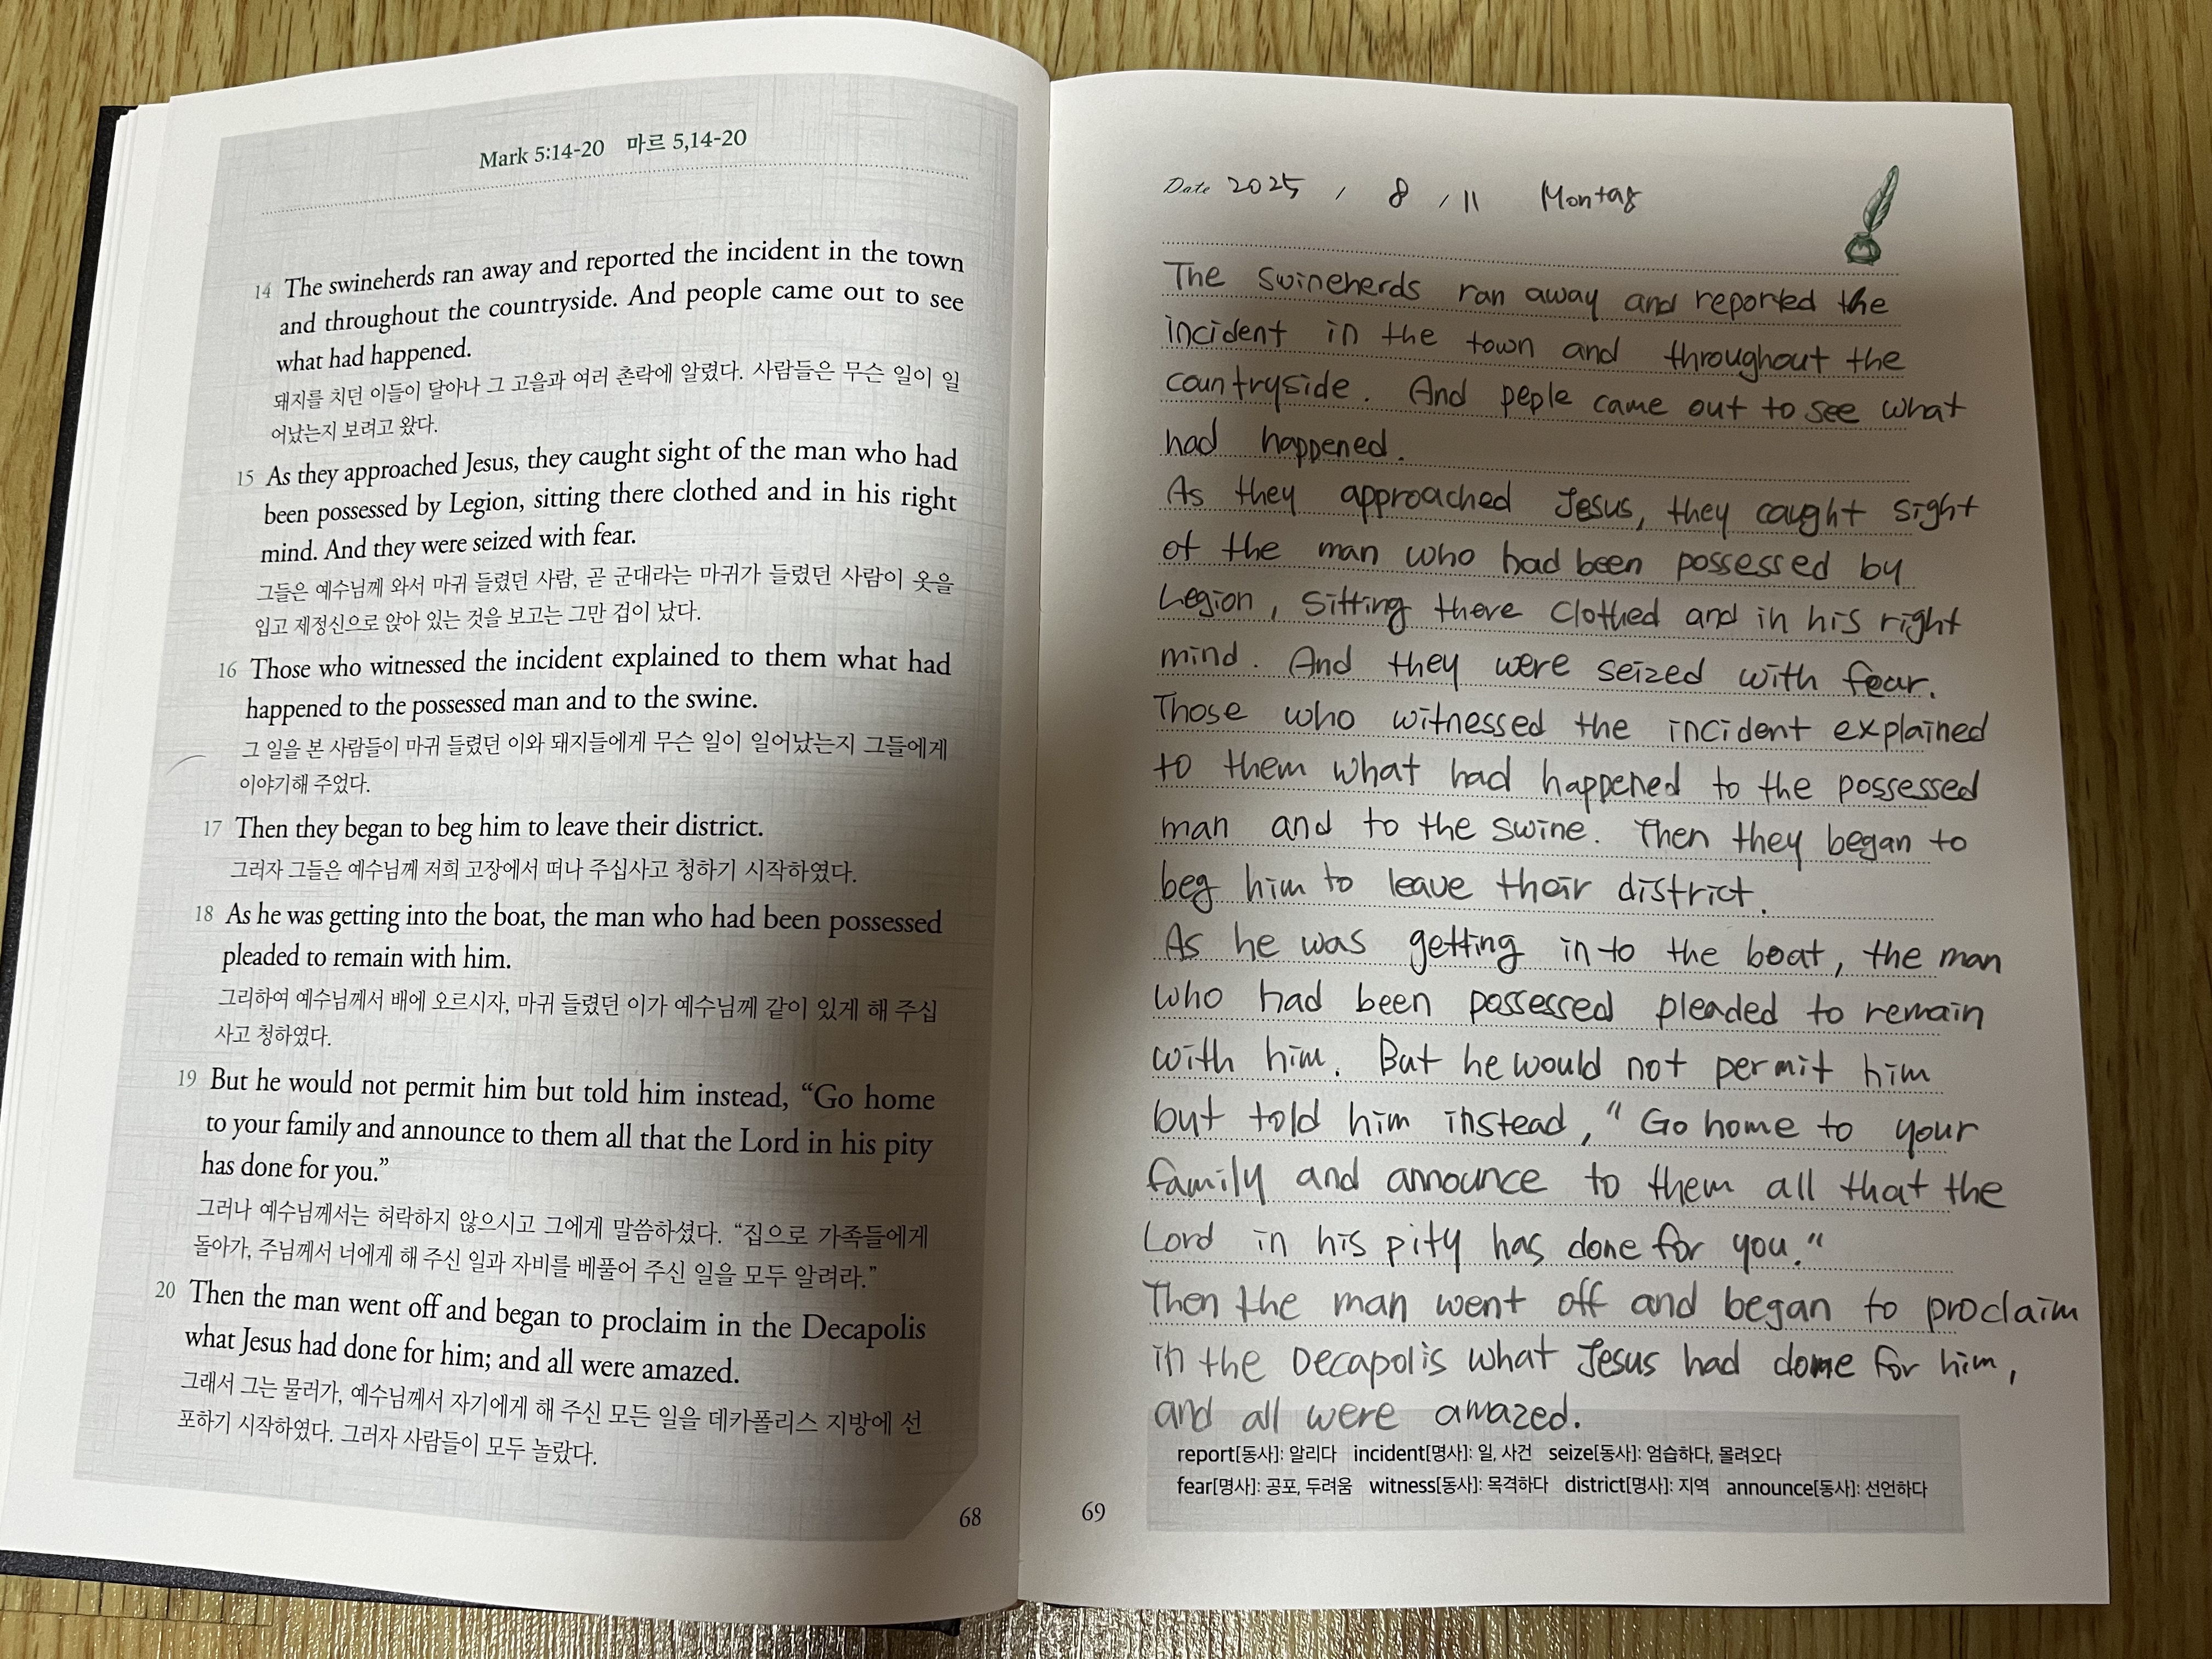 Mark 5:14-20 마르 5,14-20
14 The swineherds ran away and reported the incident in the town
and throughout the countryside. And people came out to see
what had happened.
돼지를 치던 이들이 달아나 그 고을과 여러 촌락에 알렸다. 사람들은 무슨 일이 일
어났는지 보려고 왔다.
15 As they approached Jesus, they caught sight of the man who had
been possessed by Legion, sitting there clothed and in his right
mind. And they were seized with fear.
그들은 예수님께 와서 마귀 들렸던 사람, 곧 군대라는 마귀가 들렸던 사람이 옷을
입고 제정신으로 앉아 있는 것을 보고는 그만 겁이 났다.
16 Those who witnessed the incident explained to them what had
happened to the possessed man and to the swine.
그 일을 본 사람들이 마귀 들렸던 이와 돼지들에게 무슨 일이 일어났는지 그들에게
이야기해 주었다.
17 Then they began to beg him to leave their district.
그러자 그들은 예수님께 저희 고장에서 떠나 주십사고 청하기 시작하였다.
18 As he was getting into the boat, the man who had been possessed
pleaded to remain with him.
그리하여 예수님께서 배에 오르시자, 마귀 들렸던 이가 예수님께 같이 있게 해 주십
사고 청하였다.
19 But he would not permit him but told him instead, “Go home
to your family and announce to them all that the Lord in his pity
has done for you.”
그러나 예수님께서는 허락하지 않으시고 그에게 말씀하셨다. “집으로 가족들에게
돌아가, 주님께서 너에게 해 주신 일과 자비를 베풀어 주신 일을 모두 알려라.”
20 Then the man went off and began to proclaim in the Decapolis
what Jesus had done for him; and all were amazed.
그래서 그는 물러가, 예수님께서 자기에게 해 주신 모든 일을 데카폴리스 지방에 선
포하기 시작하였다. 그러자 사람들이 모두 놀랐다.
68
Date 2025 / 8 / 11 Montag
The swineherds ran away and reported the
incident in the town and throughout the
countryside. And peple came out to see what
had happened.
As they approached Jesus, they caught sight
of the man who had been possessed by
Legion, sitting there clothed and in his right
mind. And they were seized with fear.
Those who witnessed the incident explained
to them what had happened to the possessed
man and to the swine. Then they began to
beg him to leave their district.
As he was getting into the boat, the man
who had been possessed pleaded to remain
with him. But he would not permit him
but told him instead, “Go home to your
family and announce to them all that the
Lord in his pity has done for you.“
Then the man went off and began to proclaim
in the Decapolis what Jesus had dome for him,
and all were amazed.
report[동사]: 알리다 incident[명사]: 일, 사건 seize[동사]: 엄습하다, 몰려오다
fear[명사]: 공포, 두려움 witness[동사]: 목격하다 district[명사]: 지역 announce[동사]: 선언하다
69